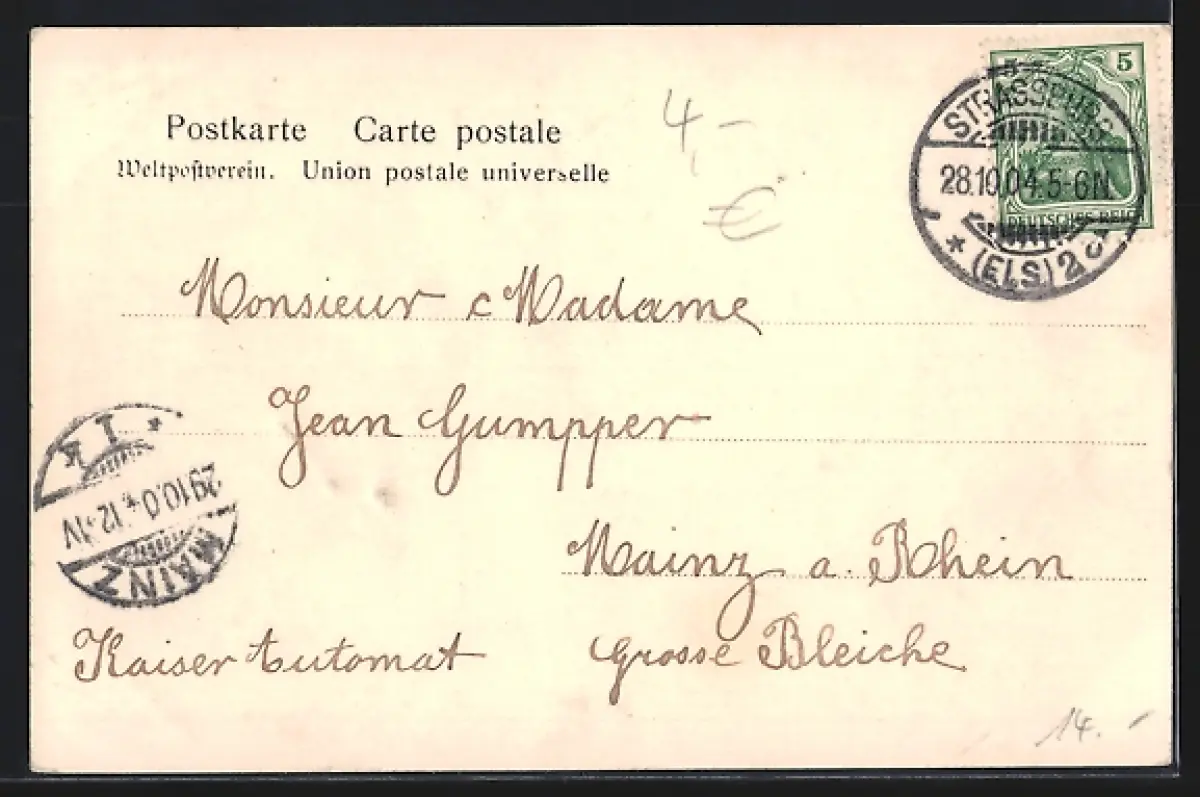 Postkarte Carte postale
Weltpostverein. Union postale universelle
4,-
€
5
DEUTSCHES REICH
STRASSBURG
28.10.04.5-6N.
* (ELS) 2 c *
Monsieur c Madame
Jean Gumpper
Mainz a. Rhein
Kaiser Automat grosse Bleiche
* 1 K
29.10.04.12-1V
MAINZ
14.-